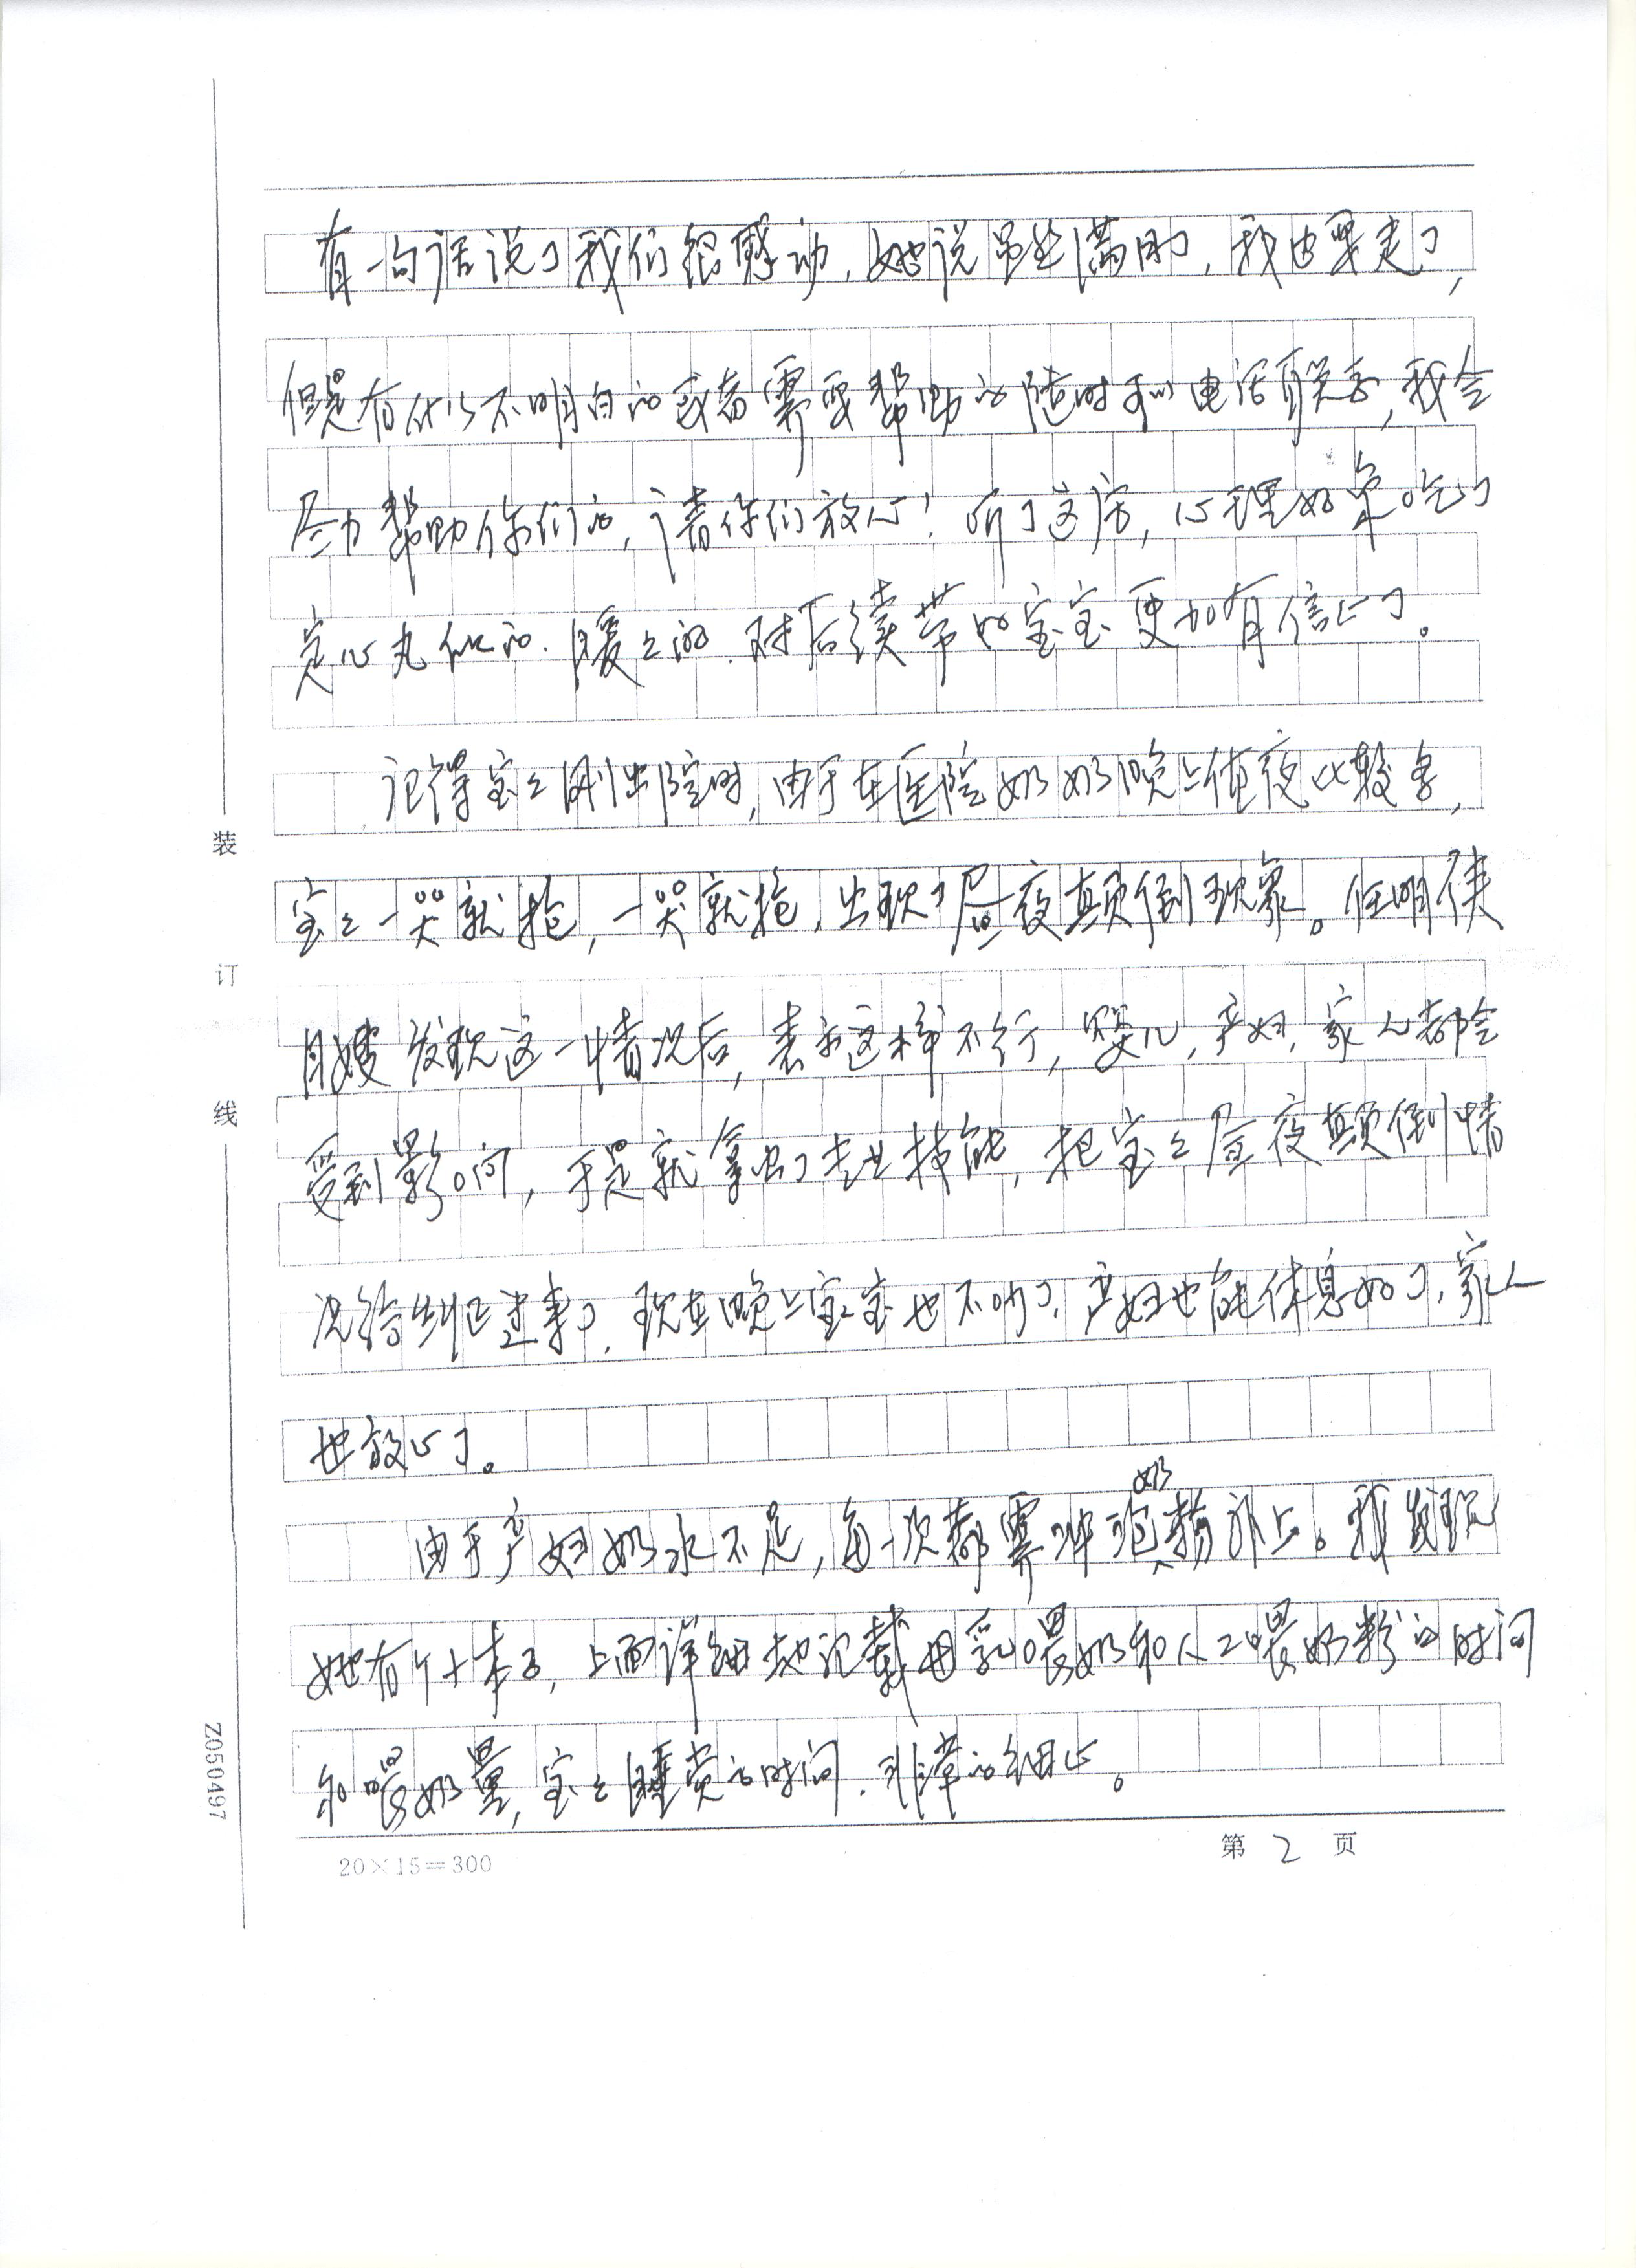 有一句话说了我们很感动,她说虽然满月了,我也要走了,
但是有什么不明白的或者需要帮助的随时可以电话联系,我会
尽力帮助你们的,请你们放心!听了这席,心理好象吃了
定心丸似的.暖々的.对后续带好宝宝更加有信心了。
记得宝々刚出院时,由于在医院奶奶晚上值夜比较多,
宝々一哭就抱,一哭就抱,出现了昼夜颠倒现象。任明侠
月嫂发现这一情况后,表示这样不行,婴儿,产妇,家人都会
受到影响,于是就拿出了专业技能,把宝々昼夜颠倒情
况给纠正过来了.现在晚上宝宝也不吵了,产妇也能休息好了,家人
也放心了。
由于产妇奶水不足,每一次都需冲泡奶粉补上。我发现
她有个小本子,上面详细地记载母乳喂奶和人工喂奶粉的时间
和喂奶量,宝々睡觉的时间.非常的细心。
装
订
线
Z050497
20×15=300
第 2 页